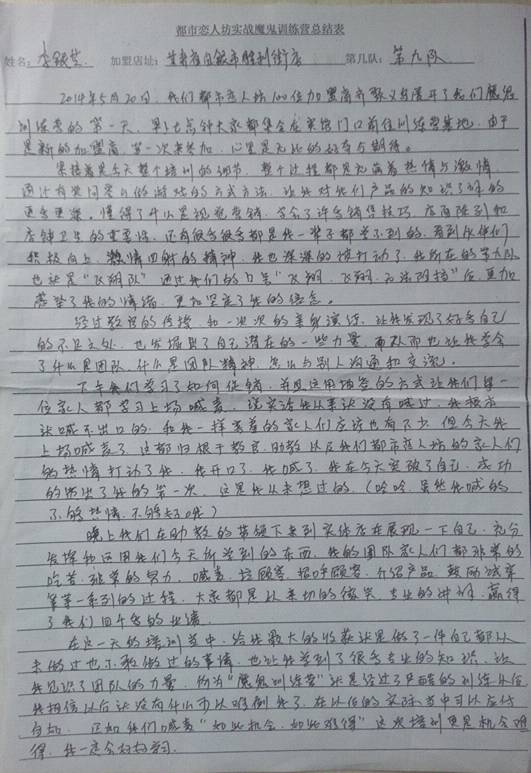 都市恋人坊实战魔鬼训练营总结表
姓名:李银兰 加盟店址:甘肃省白银市胜利街店 第几队:第九队
2014年5月20日,我们都市恋人坊100位加盟商齐聚义乌展开了我们魔鬼
训练营的第一天,早上七点钟大家都集合在宾馆门口前往训练营基地,由于
是新的加盟商,第一次来参加,心里是无比的好奇与期待。
紧接着是今天整个培训的细节,整个过程都是充满着热情与激情
通过有奖问答的做游戏的方式方法,让我对我们产品的知识了解的
更多更深。懂得了什么是视觉营销,学会了许多销售技巧,店面陈列和
店铺卫生的重要性,还有很多很多都是我一辈子都学不到的,看到伙伴们
积极向上,激情四射的精神,我也深深的被打动了,我所在的第九队
也就是“飞翔队”通过我们的口号“飞翔,飞翔,无法阻挡”后,更加
感染了我的情绪,更加坚定了我的信念。
经过教官的传授,和一次次的亲身演练,让我发现了好多自己
的不足之处,也发掘出了自己潜在的一些力量,而队而也让我学会
了什么是团队,什么是团队精神,怎么与别人沟通和交流。
下午我们学习了如何促销,并且运用场景的方式让我们每一
位家人都学习上场喊麦,说实话我从来就没有喊过,我根本
就喊不出口的,和我一样害羞的家人们应该也有不少,但今天我
上场喊麦了,这都归根于教官,助教以及我们都市恋人坊的家人们
的热情打动了我,我开口了,我喊了,我在今天突破了自己,成功
的给出了我的第一次,这是我从未想过的,(哈哈,虽然我喊的
不够热情,不够大方哦)
晚上我们在助教的带领下来到实体店在展现一下自己,充分
发挥和运用我们今天所学到的东西,我的团队家人们都非常的
吃苦,非常的努力,喊麦,拉顾客,招呼顾客,介绍产品,鼓励成单
等等一系列的过程,大家都是以亲切的微笑,专业的讲解,赢得
了我们四千多的业绩。
在这一天的培训当中,给我最大的收获就是做了一件自己都从
未做过也不敢做过的事情,也让我学到了很多专业的知识,让
我见识了团队的力量,何为“魔鬼训练营”就是经过了严酷的训练以后
我相信以后就没有什么可以难倒我了,在以后的实际当中可以应付
自如,正如我们喊麦“如此机会,如此难得”这次培训更是机会难
得,我一定会好好学习。